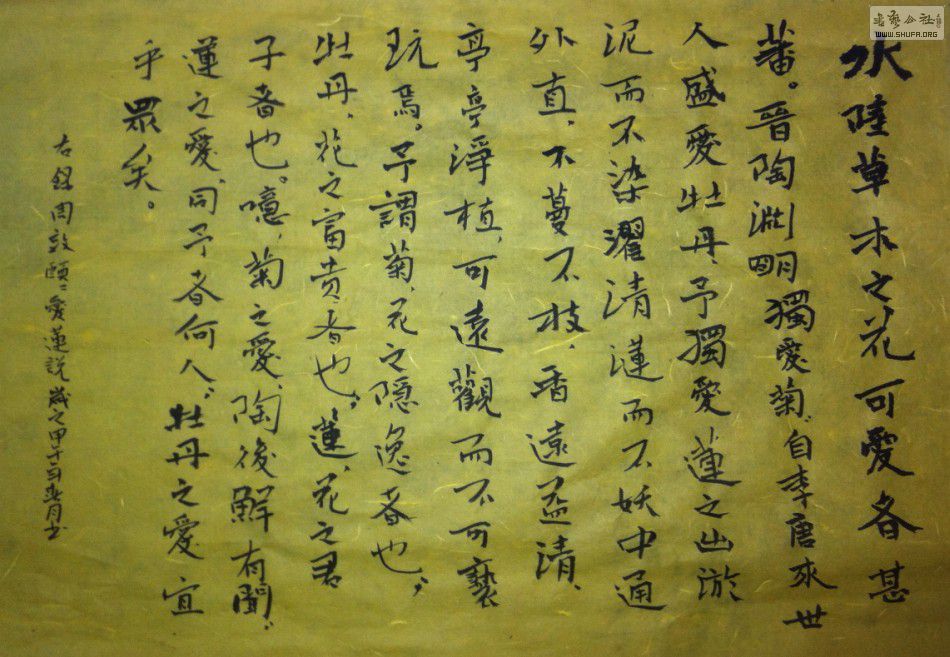 水陸草木之花可愛者甚
蕃。晉陶淵明獨愛菊、自李唐來世
人盛愛牡丹、予獨愛蓮之出淤
泥而不染濯清漣而不妖中通
外直、不蔓不枝、香遠益清、
亭亭淨植、可遠觀而不可褻
玩焉。予謂菊、花之隱逸者也；
牡丹、花之富贵者也；蓮、花之君
子者也。噫、菊之愛、陶後鮮有聞；
蓮之愛、同予者何人；牡丹之愛宜
乎眾矣。
右錄周敦頤愛蓮說歲之甲午
書艺公社
WWW.SHUFA.ORG